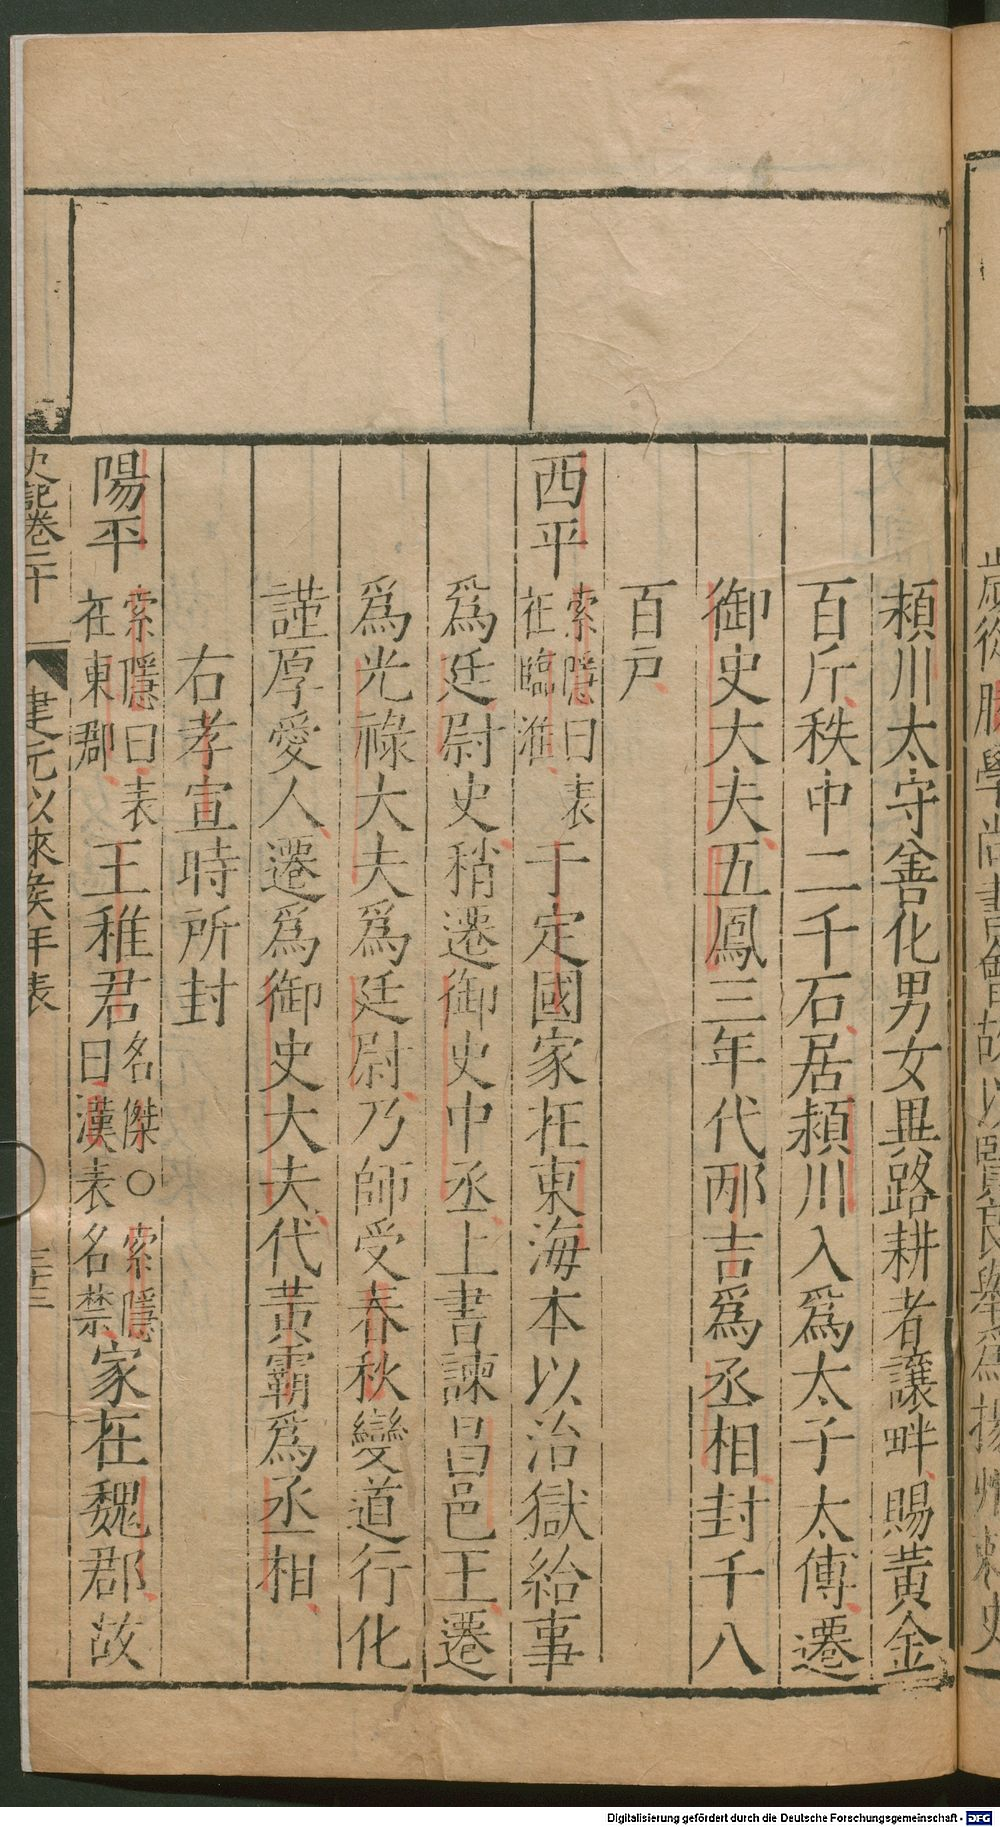 潁川太守善化男女異路耕者讓畔賜黃金
百斤秩中二千石居潁川入爲太子太傅遷
御史大夫五鳳三年代邴吉爲丞相封千八
百戸
西平 索隱曰表在臨淮 于定國家在東海本以治獄給事
爲廷尉史稍遷御史中丞上書諫昌邑王遷
爲光祿大夫爲廷尉乃師受春秋變道行化
謹厚愛人遷爲御史大夫代黃霸爲丞相
右孝宣時所封
陽平 索隱曰表在東郡 王稚君 名傑○索隱曰漢表名禁 家在魏郡故
史記卷二十 建元以來侯年表 三十三
Digitalisierung gefördert durch die Deutsche Forschungsgemeinschaft - DFG